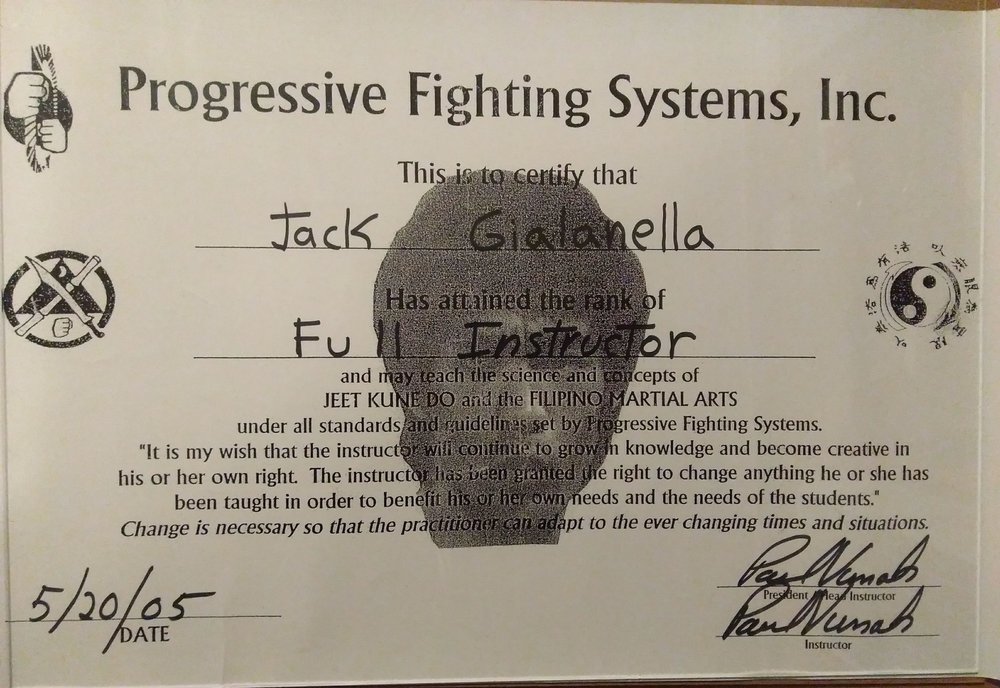 Progressive Fighting Systems, Inc.
This is to certify that
Jack Gialanella
Has attained the rank of
Full Instructor
and may teach the science and concepts of
JEET KUNE DO and the FILIPINO MARTIAL ARTS
under all standards and guidelines set by Progressive Fighting Systems.
"It is my wish that the instructor will continue to grow in knowledge and become creative in
his or her own right. The instructor has been granted the right to change anything he or she has
been taught in order to benefit his or her own needs and the needs of the students."
Change is necessary so that the practitioner can adapt to the ever changing times and situations.
5/20/05
DATE
Paul Vunak
President / Head Instructor
Paul Vunak
Instructor